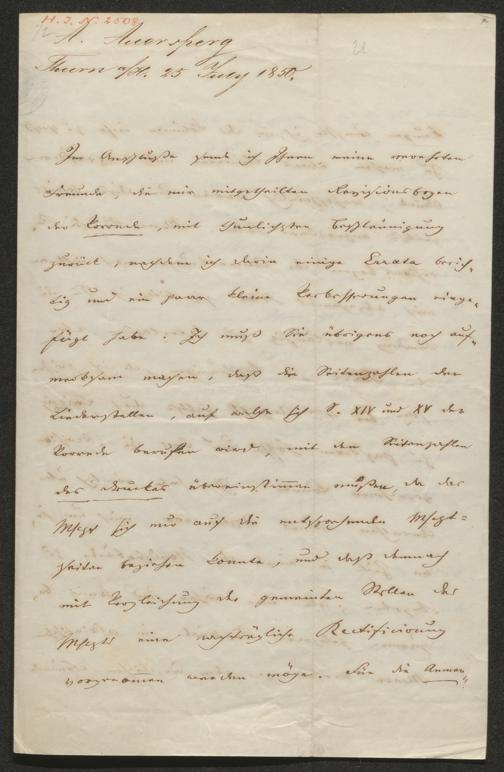 H. I. N. 2508
A. Auersperg
Thurn a/H. 25 July 1850.
Im Anschluße sende ich Ihnen meine verehrten
Freunde, die mir mitgetheilten Revisionsbogen
der Vorrede, mit thunlichster Beschleunigung
zurück, nachdem ich darin einige Errata berich-
tig und ein paar kleine Verbesserungen einge-
fügt habe. Ich muß Sie übrigens noch auf-
merksam machen, daß die Seitenzahlen der
Liederstellen, auf welche sich S. XIV und XV der
Vorrede berufen wird, mit den Seitenzahlen
des Druckes übereinstimmen müßen, da das
Mscpt sich nur auf die entsprechenden Mscpt-
seiten beziehen konnte, und daß demnach
mit Vergleichung der gemeinten Stellen des
Mscpts eine nachträgliche Rectificirung
vorgenommen werden möge. Für die Anmer-